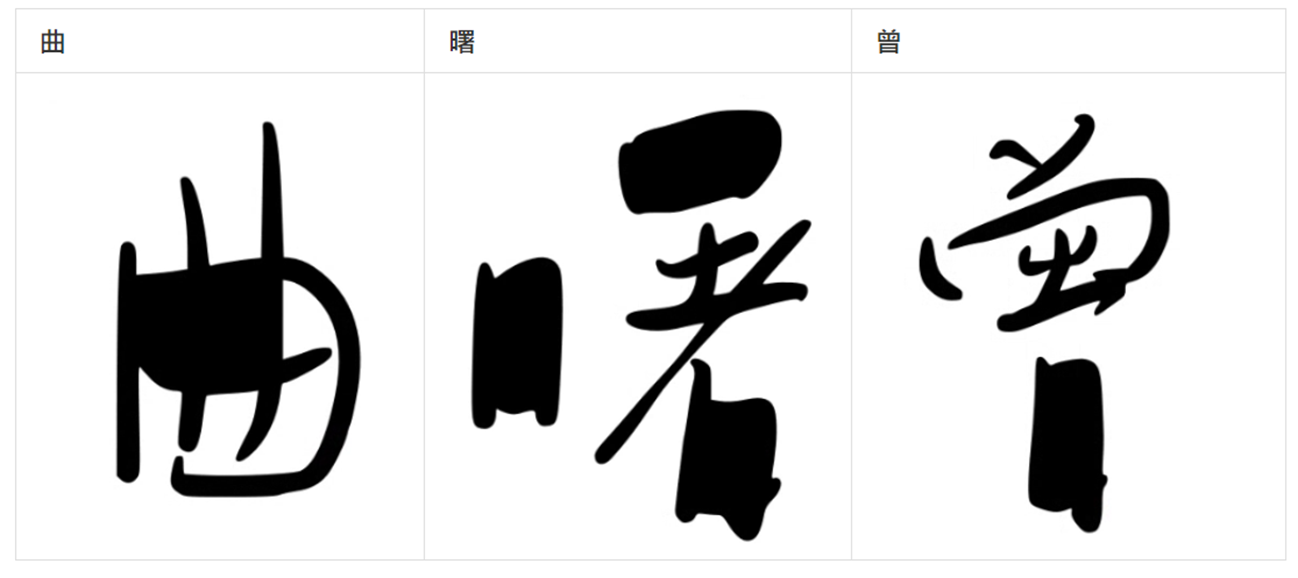 曲 曙 曾
曲 曙 曾